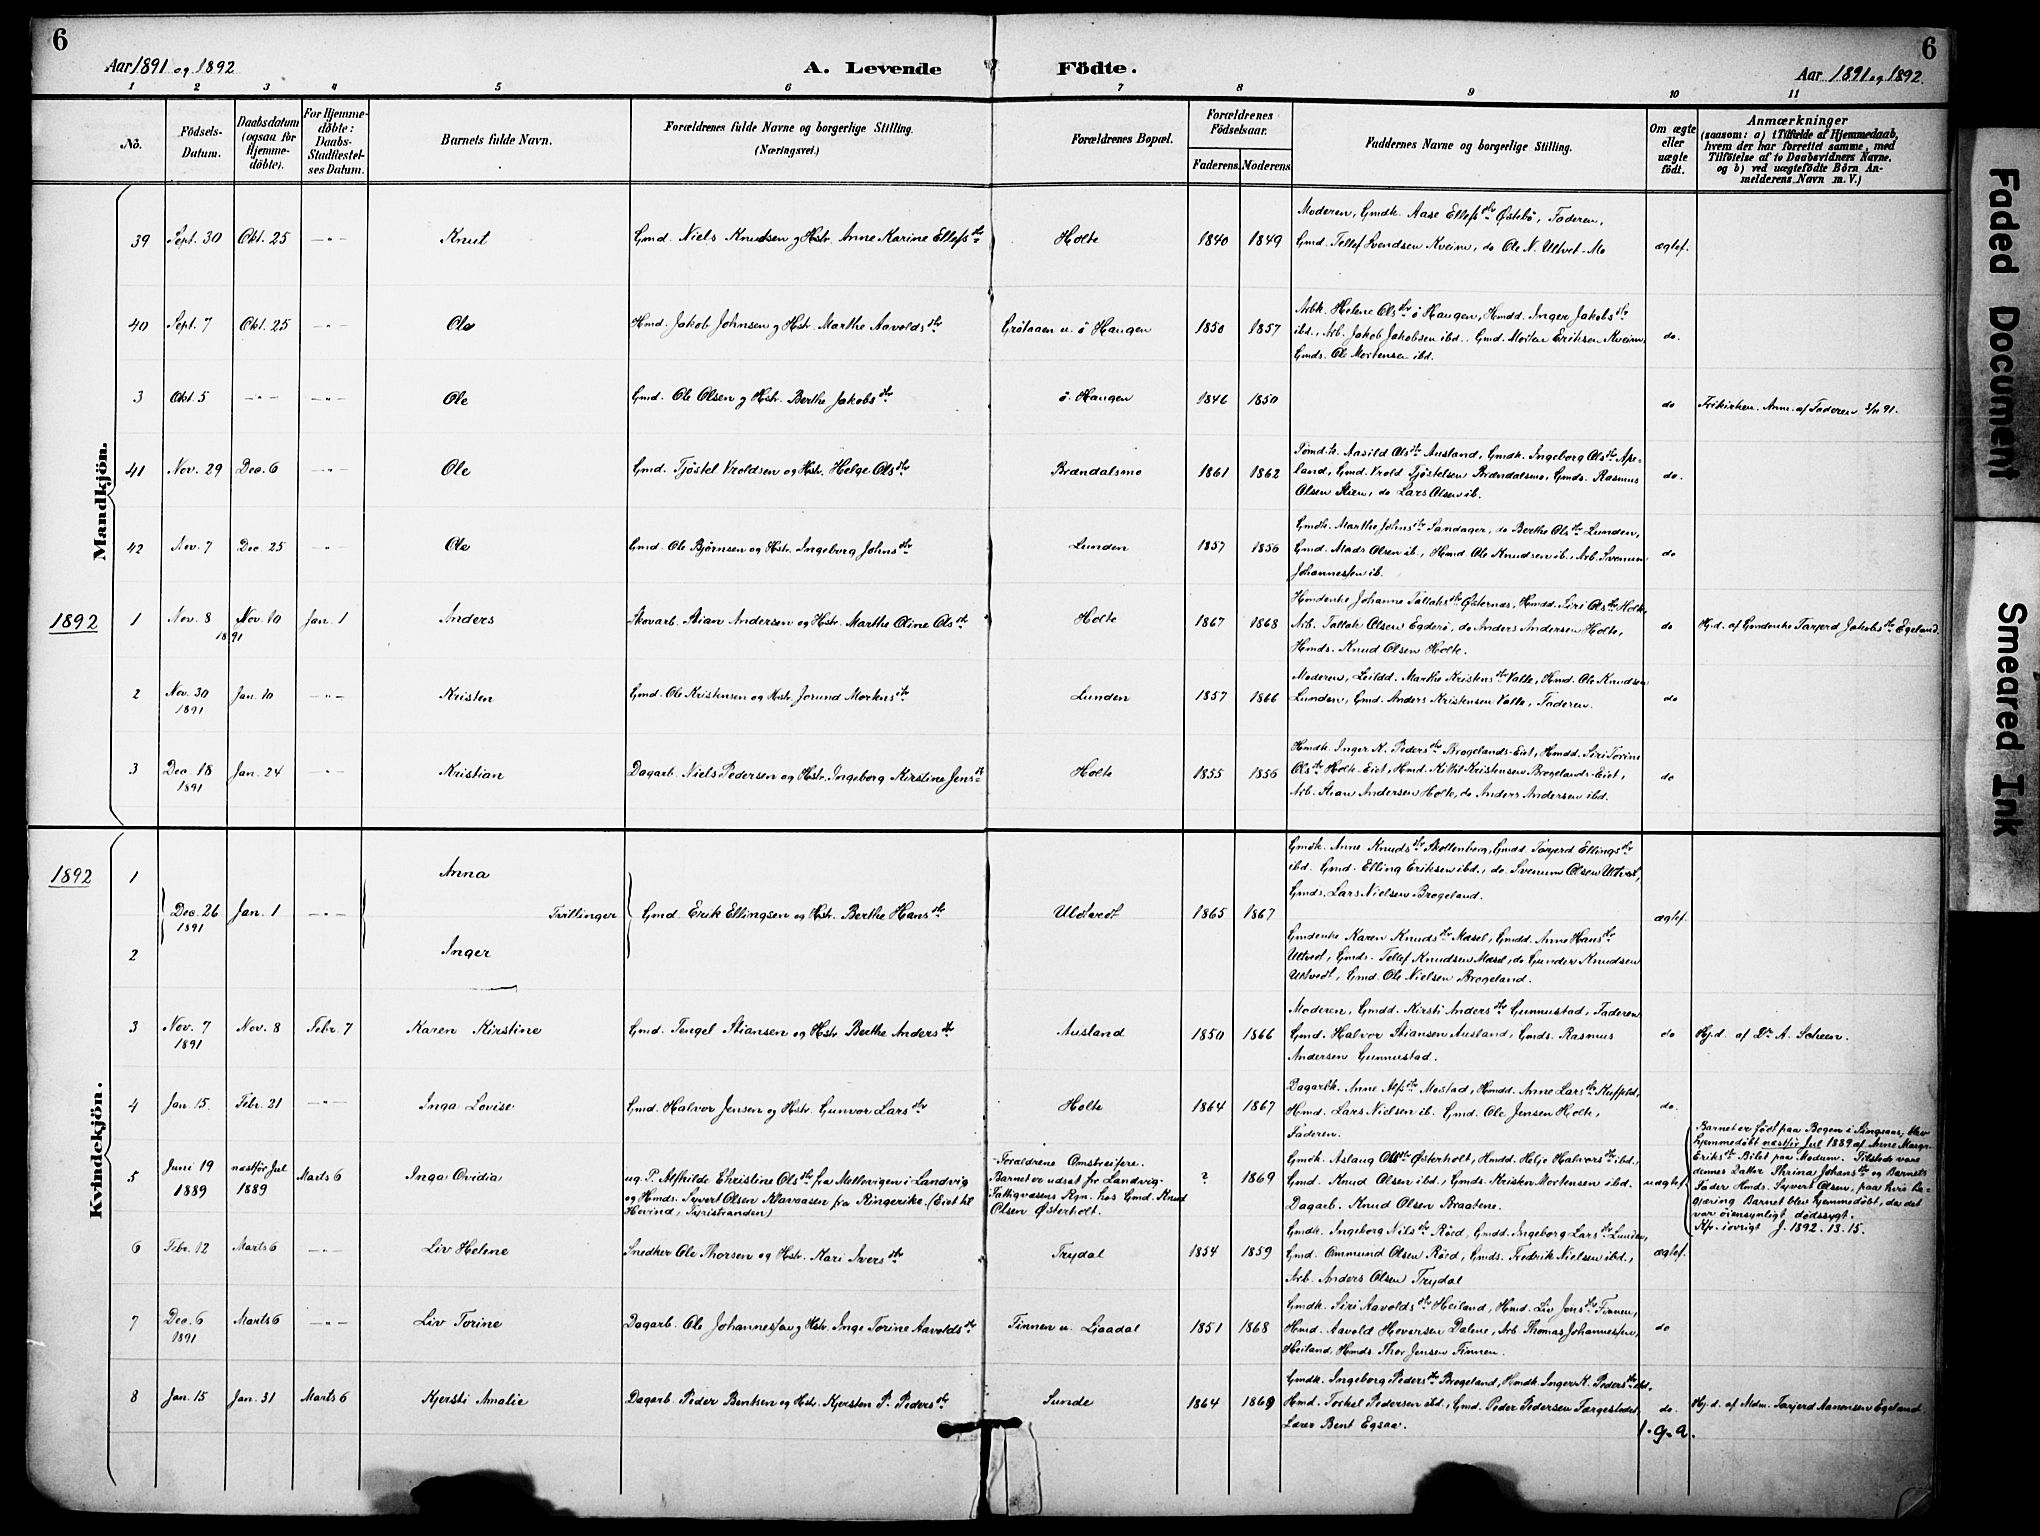 6
Aar 1891 og 1892
A. Levende Födte.
Aar 1891 og 1892.
6
1 2 3 4 5 6 7 8 9 10 11
No.
Födsels-
Datum.
Daabsdatum
(ogsaa for
Hjemme-
döbte).
For Hjemme-
döbte:
Daabs-
Stadfæstel-
ses Datum.
Barnets fulde Navn.
Forældrenes fulde Navne og borgerlige Stilling.
(Næringsvei.)
Forældrenes Bopæl.
Forældrenes
Födselsaar.
Faderens. Moderens.
Faddernes Navne og borgerlige Stilling.
Om ægte
eller
uægte
födt.
Anmærkninger
(saasom: a) i Tilfælde af Hjemmedaab,
hvem der har forrettet samme, med
Tilföielse af to Daabsvidners Navne.
og b) ved uægtefödte Börn An-
melderens Navn m. V.)
Mandkjön.
39 Sept. 30 Okt. 25 -"- Knut Gmd. Niels Knudsen og Hstr. Anne Karine Ellefsdtr Holte 1840 1849
Moderen, Gmdk. Aase Ellefsdtr Østebö, Faderen,
Gmd. Tellef Svendsen Kveim, do Ole N. Ultvet-Mo
ægtef.
40 Sept. 7 Okt. 25 -"- Ole Hmd. Jakob Johnsen og Hstr. Marthe Aavoldsdtr Grötaaen u. ö Haugen 1850 1857
Arbk. Helene Olsdtr ö Haugen, Hmdd. Inger Jakobsdtr
ibd., Arb. Jakob Jakobsen ibd., Gmd. Morten Eriksen Kveim,
Gmds. Ole Mortensen ibd.
do.
3 Okt. 5 -"- -"- Ole Gmd. Ole Olsen og Hstr. Berthe Jakobsdtr ö. Haugen 1846 1850 do Frikirken. Anm. af Faderen 3/11 91.
41 Nov. 29 Dec. 6 -"- Ole Gmd. Tjöstel Vroldsen og Hstr. Helge Olsdtr Brændalsmo 1861 1862
Tömd.k. Aasild Olsdtr Ausland, Gmdk. Ingeborg Olsdtr Ape-
land, Gmd. Vrold Tjöstelsen Brændalsmo, Gmds. Rasmus
Olsen Stien, do Lars Olsen ib.
do.
42 Nov. 7 Dec. 25 -"- Ole Gmd. Ole Björnsen og Hstr. Ingeborg Johnsdtr Lunden 1857 1856
Gmdk. Marthe Johnsdtr Sandager, do Berthe Olsdtr Lunden,
Gmd. Mads Olsen ib., Hmd Ole Knudsen ib., Arb. Svenum
Johannessen ib.
do
1892
1 Nov. 8 Nov. 10 Jan. 1 Anders Skovarb. Stian Andersen og Hstr. Marthe Oline Olsdtr Holte 1867 1868
1891
Hmdenke Johanne Tallaksdtr Østernes, Hmdd. Siri Olsdtr Holte,
Arb. Tallak Olsen Egderö, do Anders Andersen Holte,
Hmds. Knud Olsen Holte.
do Hj.d. af Gmdenke Tarjerd Jakobsdtr Egeland.
2 Nov. 30 Jan. 10 -"- Kristen Gmd. Ole Kristensen og Hstr. Jorund Mortensdtr Lunden 1857 1866
1891
Moderen, Leildd. Marthe Kristensdtr Valle, Hmd. Ole Knudsen
Lunden, Gmd. Anders Kristensen Valle, Faderen.
do
3 Dec. 18 Jan. 24 -"- Kristian Dagarb. Niels Pedersen og Hstr. Ingeborg Kirstine Jensdtr Holte 1855 1856
1891
Hmdk. Inger K. Pedersdtr Brogelands-Eiet, Hmdd. Siri Torine
Olsdtr Holte-Eiet, Hmd. Kittil Kristensen Brogelands-Eiet,
Arb. Stian Andersen Holte, do Anders Andersen ibd.
do
Kvindekjön.
1892
1 Anna
Dec. 26 Jan. 1 -"- Tvillinger Gmd. Erik Ellingsen og Hstr. Berthe Hansdtr Uldtvedt 1865 1867
1891
2 Inger
Gmdk. Anne Knudsdtr Skollenborg, Gmdd. Tarjerd Ellingsdtr
ibd. Gmd. Elling Eriksen ibd., do. Svenum Olsen Ultvet,
Gmds. Lars Nielsen Brogeland.
Gmdenke Karen Knudsdtr Mæsel, Gmdd. Anne Hansdtr
Ultvedt, Gmds. Tellef Knudsen Mæsel, do Gunder Knudsen
Ultvedt, Gmd. Ole Nielsen Brogeland.
ægtef.
3 Nov. 7 Nov. 8 Febr. 7 Karen Kirstine Gmd. Tengel Stiansen og Hstr. Berthe Andersdtr Ausland 1850 1866
1891
Moderen, Gmdd. Kirsti Andersdtr Gunnustad, Faderen
Gmd. Halvor Stiansen Ausland, Gmds. Rasmus
Andersen Gunnustad.
do Hj.d. af Dr. A. Scheen.
4 Jan. 15. Febr. 21 -"- Inga Lovise Gmd. Halvor Jensen og Hstr. Gunvor Larsdtr Holte 1864 1867
Dagarbk. Anne Alfsdtr Mostad, Hmdd. Anne Larsdtr
Hmd. Lars Nielsen ib. Gmd. Ole Jensen Holte,
Faderen.
do.
5 Juni 19 næstför Jul Marts 6 Inga Ovidia
1889 1889
ug. P. Alfhilde Christine Olsdtr fra Mellevigen i Landvig
og Hmds. Syvert Olsen Klavaasen fra Ringerike. (Eiet til
Hovind, Tyristranden)
Forældrene Omstreifere.
Barnet er udsat for Landvig
Fattigvæsens Regn. hos Gmd. Knud
Olsen Østerholt.
? 1869
Gmdk. Aslaug Olsdtr Østerholt, Hmdd. Helje Halvorsdtr ibd.,
Gmd. Knud Olsen ibd., Gmds. Kristen Mortensen ibd.
Dagarb. Knud Olsen Braatene.
uægtef.
Barnet er født paa Bogen i Singsaas, blev
hjemmedöbt næstför Jul 1889 af Anne Margr.
Eriksdtr Bilet paa Modum. Tilstede vare
dennes Datter Thrina Johansdtr og Barnets
Fader Hmds. Syvert Olsen, paa hvis Be-
gjæring Barnet blev hjemmedöbt, da det
var öiensynligt dödssygt.
Kfr. iövrigt J. 1892. 13. 15.
6 Febr. 12 Marts 6 -"- Liv Helene Snedker Ole Thorsen og Hstr. Kari Iversdtr Trydal 1854 1859
Gmdk. Ingeborg Nilsdtr Röed, Gmdd. Ingeborg Larsdtr Lunden,
Gmd. Ommund Olsen Röed, Gmds. Fredrik Nielsen ibd.,
Arb. Anders Olsen Trydal
ægtef.
7 Dec. 6 Marts 6 -"- Liv Torine Dagarb. Ole Johannessen og Hstr. Inge Torine Aavoldsdtr Finnen u. Ljaadal 1851 1868
1891
Gmdk. Siri Aavoldsdtr Heiland, Hmd. Liv Jensdtr Finnen,
Hmd. Aavold Hoversen Dalene, Arb. Thomas Johannessen,
Heiland, Hmds. Thor Jensen Finnen.
do
8 Jan. 15 Jan. 31 Marts 6 Kjersti Amalie Dagarb. Peder Bentsen og Hstr. Kjersten P. Pedersdtr Sunde 1864 1869
Gmdk. Ingeborg Pedersdtr Brogeland, Hmdk. Inger K. Pedersdtr ibd.
Hmd. Torkel Pedersen ibd., Gmd. Peder Pedersen Færgestedet,
Lærer Bent Egsaa.
do. Hj.d. af Mdm. Tarjerd Aanonsen Egeland.
1.g.a.
Faded Document
Smeared Ink